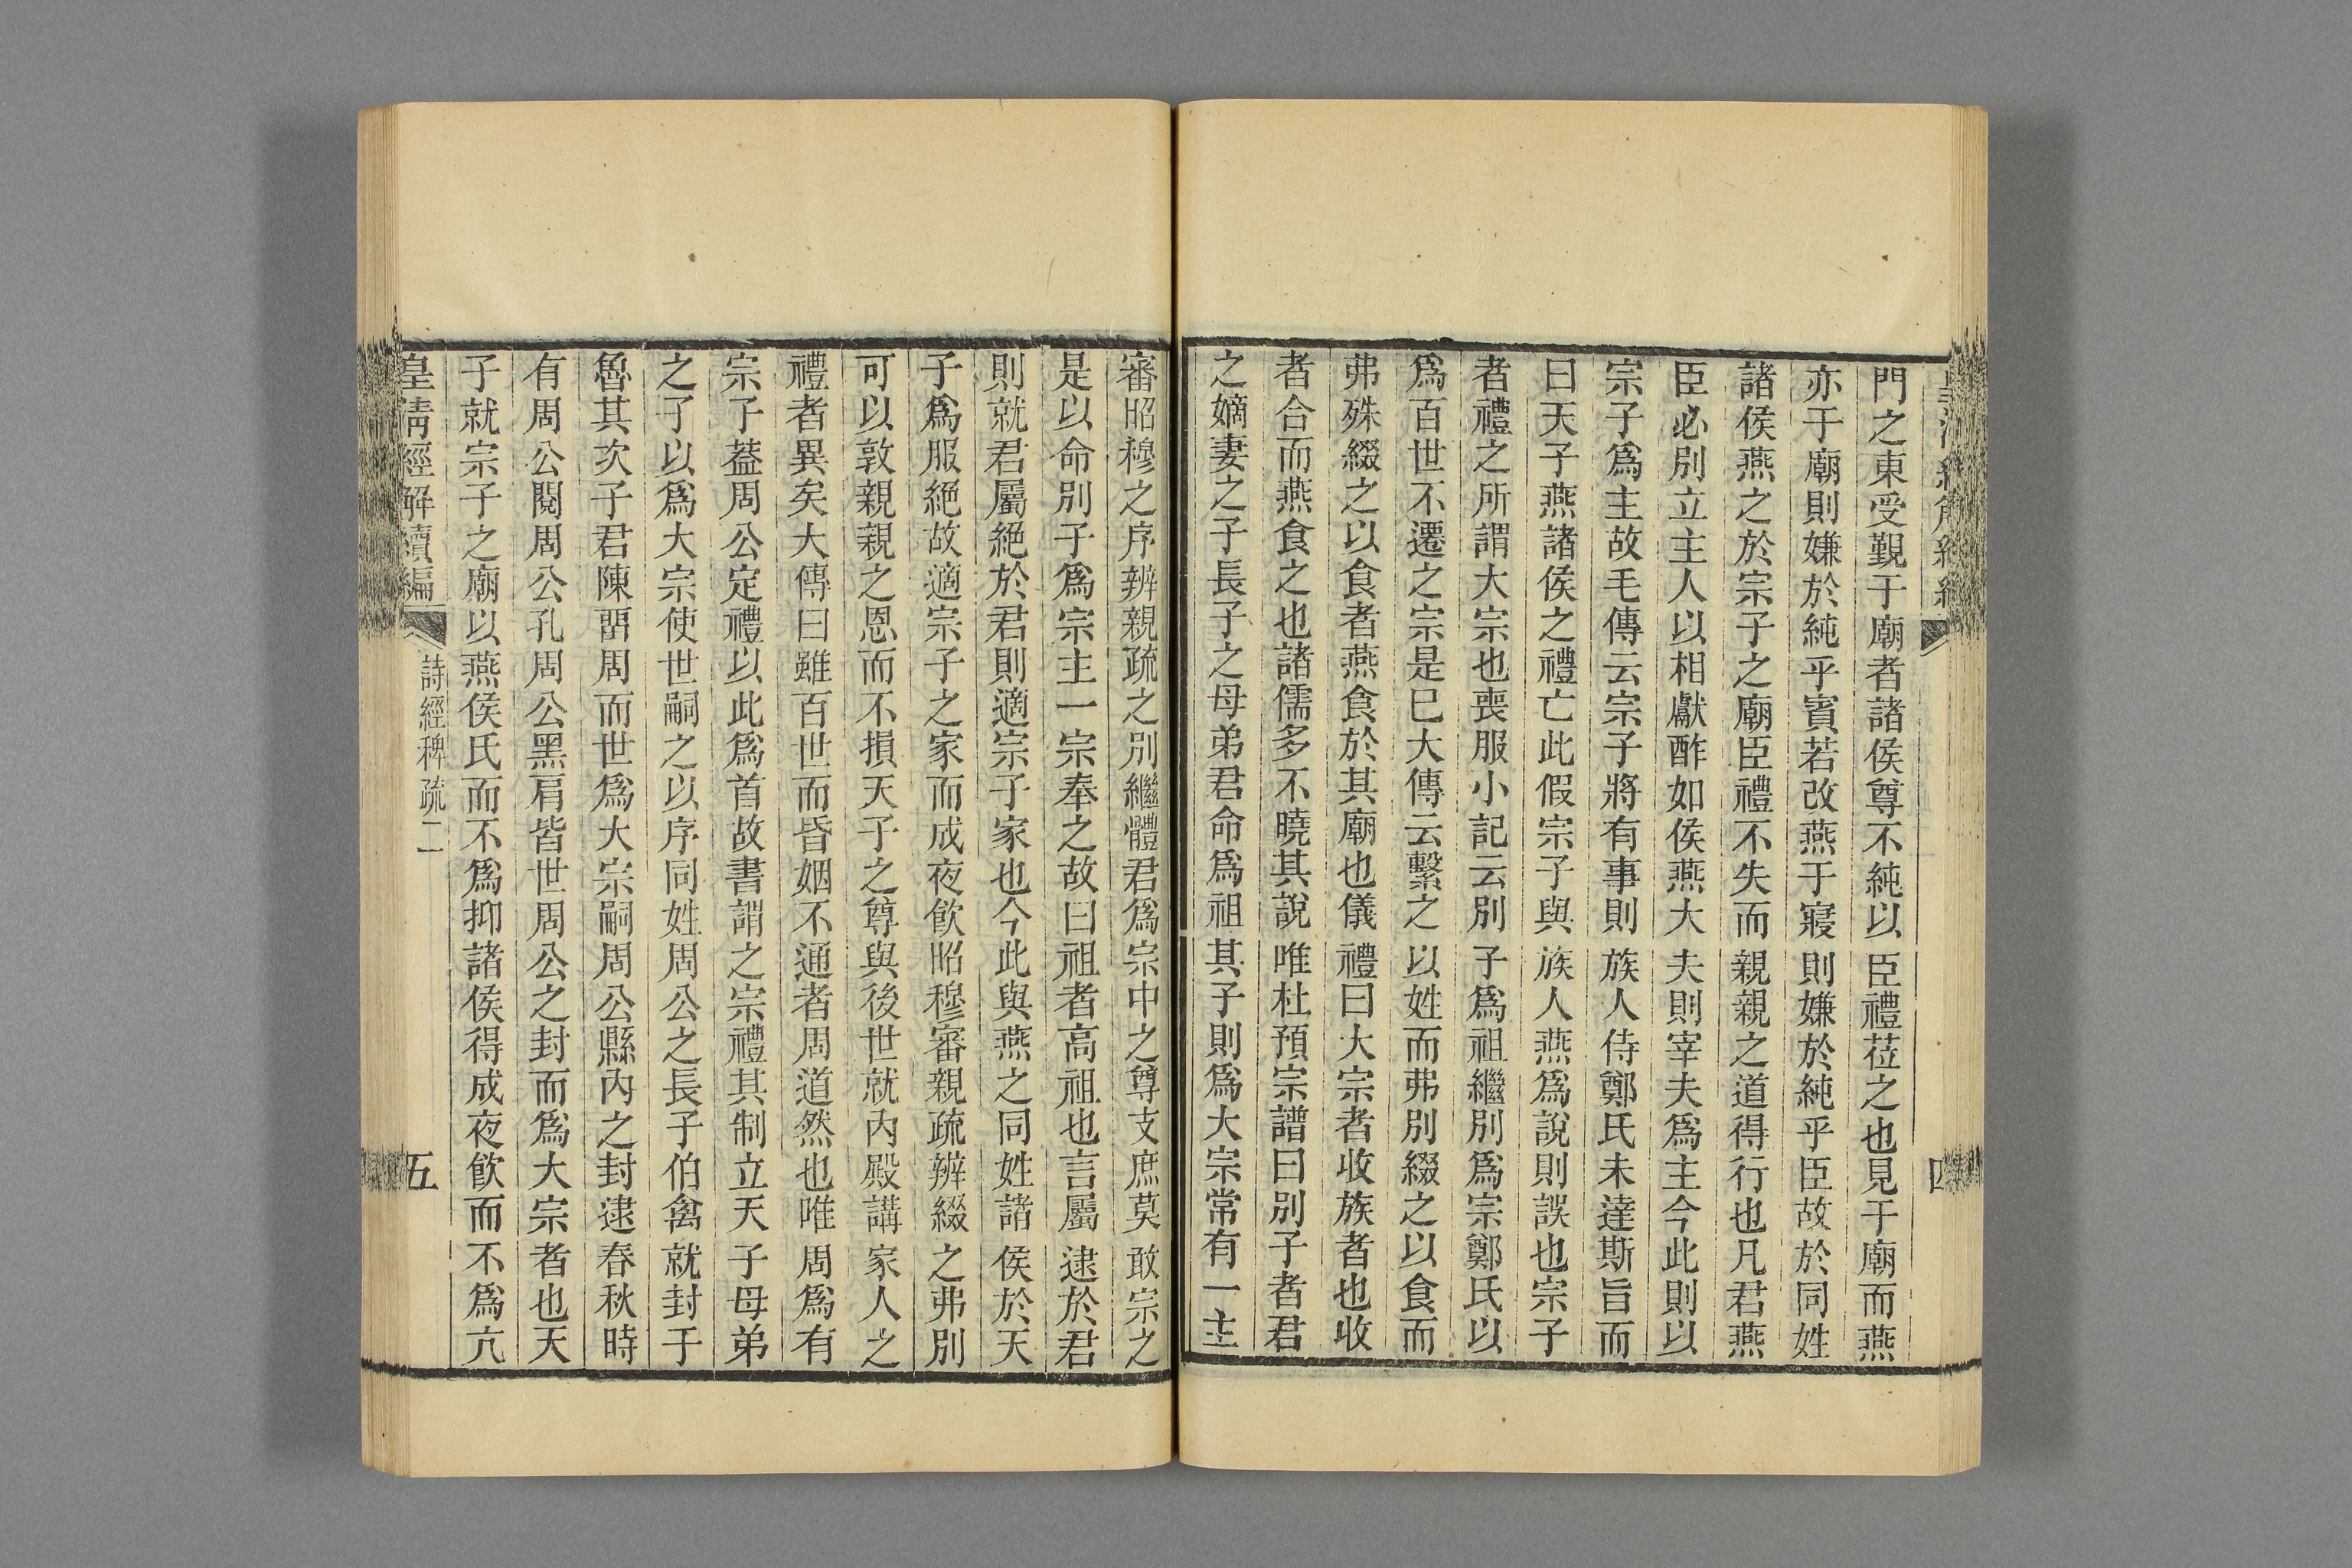 門之東受覲于廟者諸侯尊不純以臣禮莅之也見于廟而燕
亦于廟則嫌於純乎賓若改燕于寢則嫌於純乎臣故於同姓
諸侯燕之於宗子之廟臣禮不失而親親之道得行也凡君燕
臣必別立主人以相獻酢如侯燕大夫則宰夫爲主今此則以
宗子爲主故毛傳云宗子將有事則族人侍鄭氏未達斯旨而
曰天子燕諸侯之禮亡此假宗子與族人燕爲說則誤也宗子
者禮之所謂大宗也喪服小記云別子爲祖繼別爲宗鄭氏以
爲百世不遷之宗是巳大傳云繫之以姓而弗別綴之以食而
弗殊綴之以食者燕食於其廟也儀禮曰大宗者收族者也收
者合而燕食之也諸儒多不曉其說唯杜預宗譜曰別子者君
之嫡妻之子長子之母弟君命爲祖其子則爲大宗常有一主
審昭穆之序辨親疏之別繼體君爲宗中之尊支庶莫敢宗之
是以命別子爲宗主一宗奉之故曰祖者高祖也言屬逮於君
則就君屬絕於君則適宗子家也今此與燕之同姓諸侯於天
子爲服絕故適宗子之家而成夜飮昭穆審親疏辨綴之弗別
可以敦親親之恩而不損天子之尊與後世就內殿講家人之
禮者異矣大傳曰雖百世而昏姻不通者周道然也唯周爲有
宗子葢周公定禮以此爲首故書謂之宗禮其制立天子母弟
之子以爲大宗使世嗣之以序同姓周公之長子伯禽就封于
魯其次子君陳畱周而世爲大宗嗣周公縣內之封逮春秋時
有周公閱周公孔周公黑肩皆世周公之封而爲大宗者也天
子就宗子之廟以燕侯氏而不爲抑諸侯得成夜飮而不爲亢
皇淸經解續編
詩經稗疏二
五